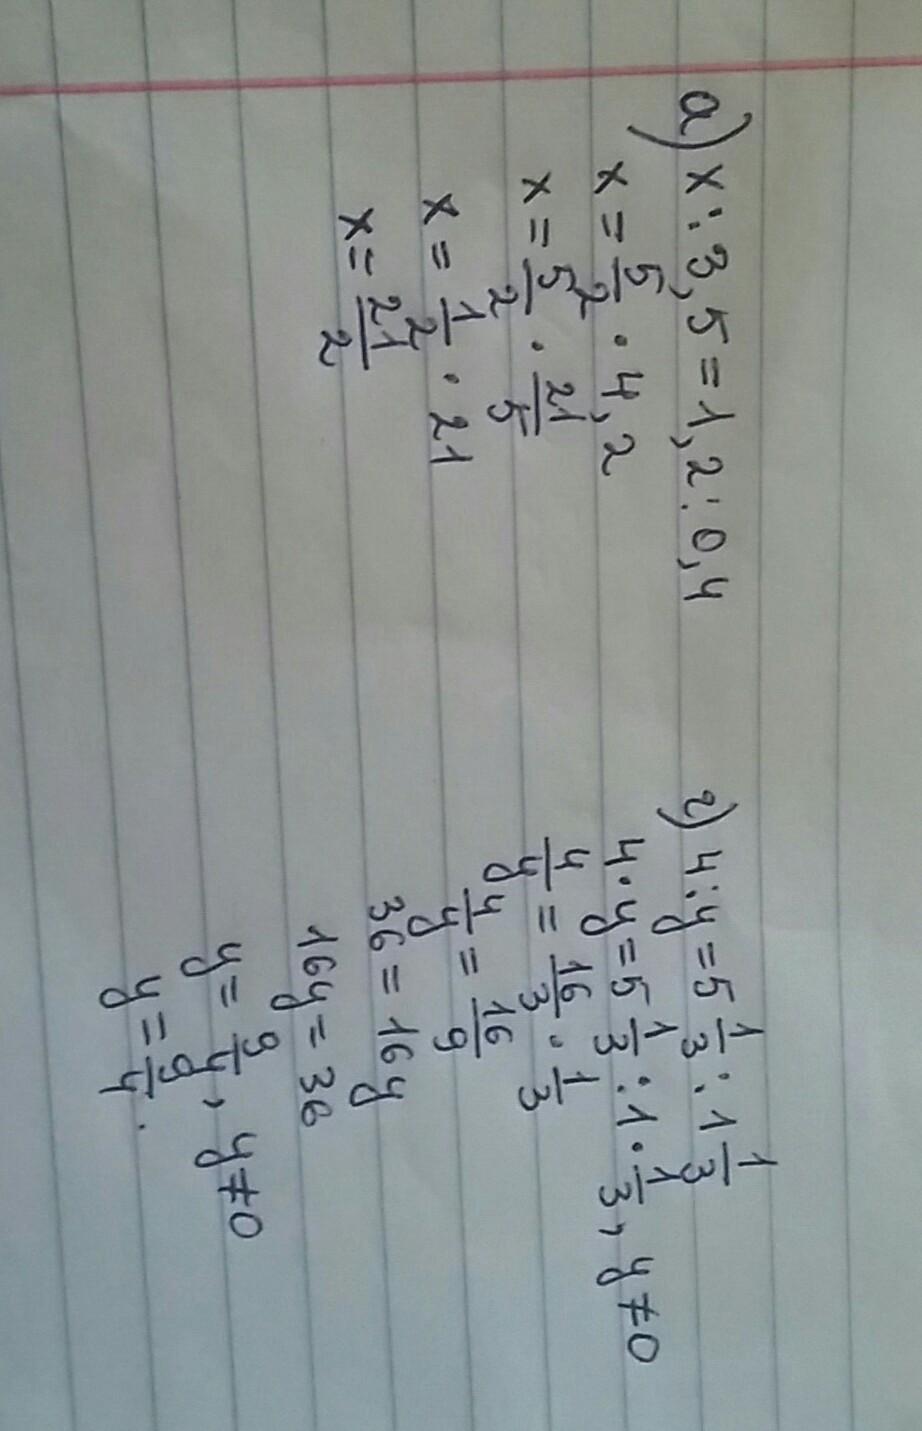 а) x : 3,5 = 1,2 : 0,4
x = 5/2 · 4,2
x = 5/2 · 21/5
x = 1/2 · 21
x = 21/2
г) 4 : y = 5 1/3 : 1 1/3
4 · y = 5 1/3 : 1 · 1/3, y ≠ 0
4/y = 16/3 · 1/3
4/y = 16/9
36 = 16y
16y = 36
y = 9/4, y ≠ 0
y = 9/4.